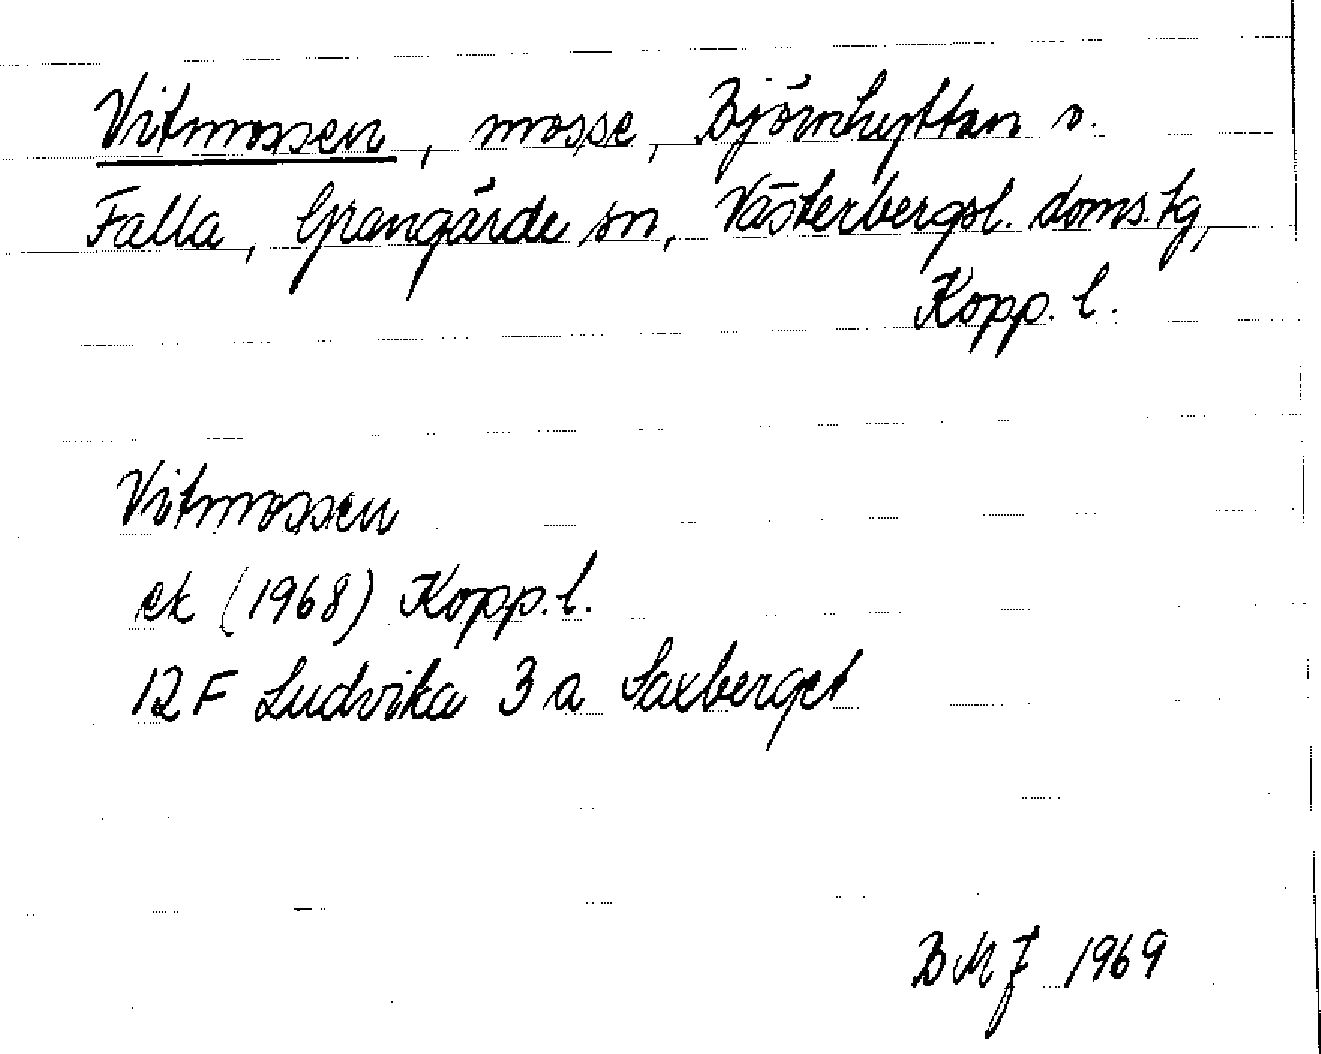 Vitmossen, mosse, Björnhyttan o.
Falla, Grangärde sn, Västerbergsl. doms.tg,
Kopp. l.
Vitmossen
ek (1968) Kopp. l.
12 F Ludvika 3 a Saxberget
BMJ 1969